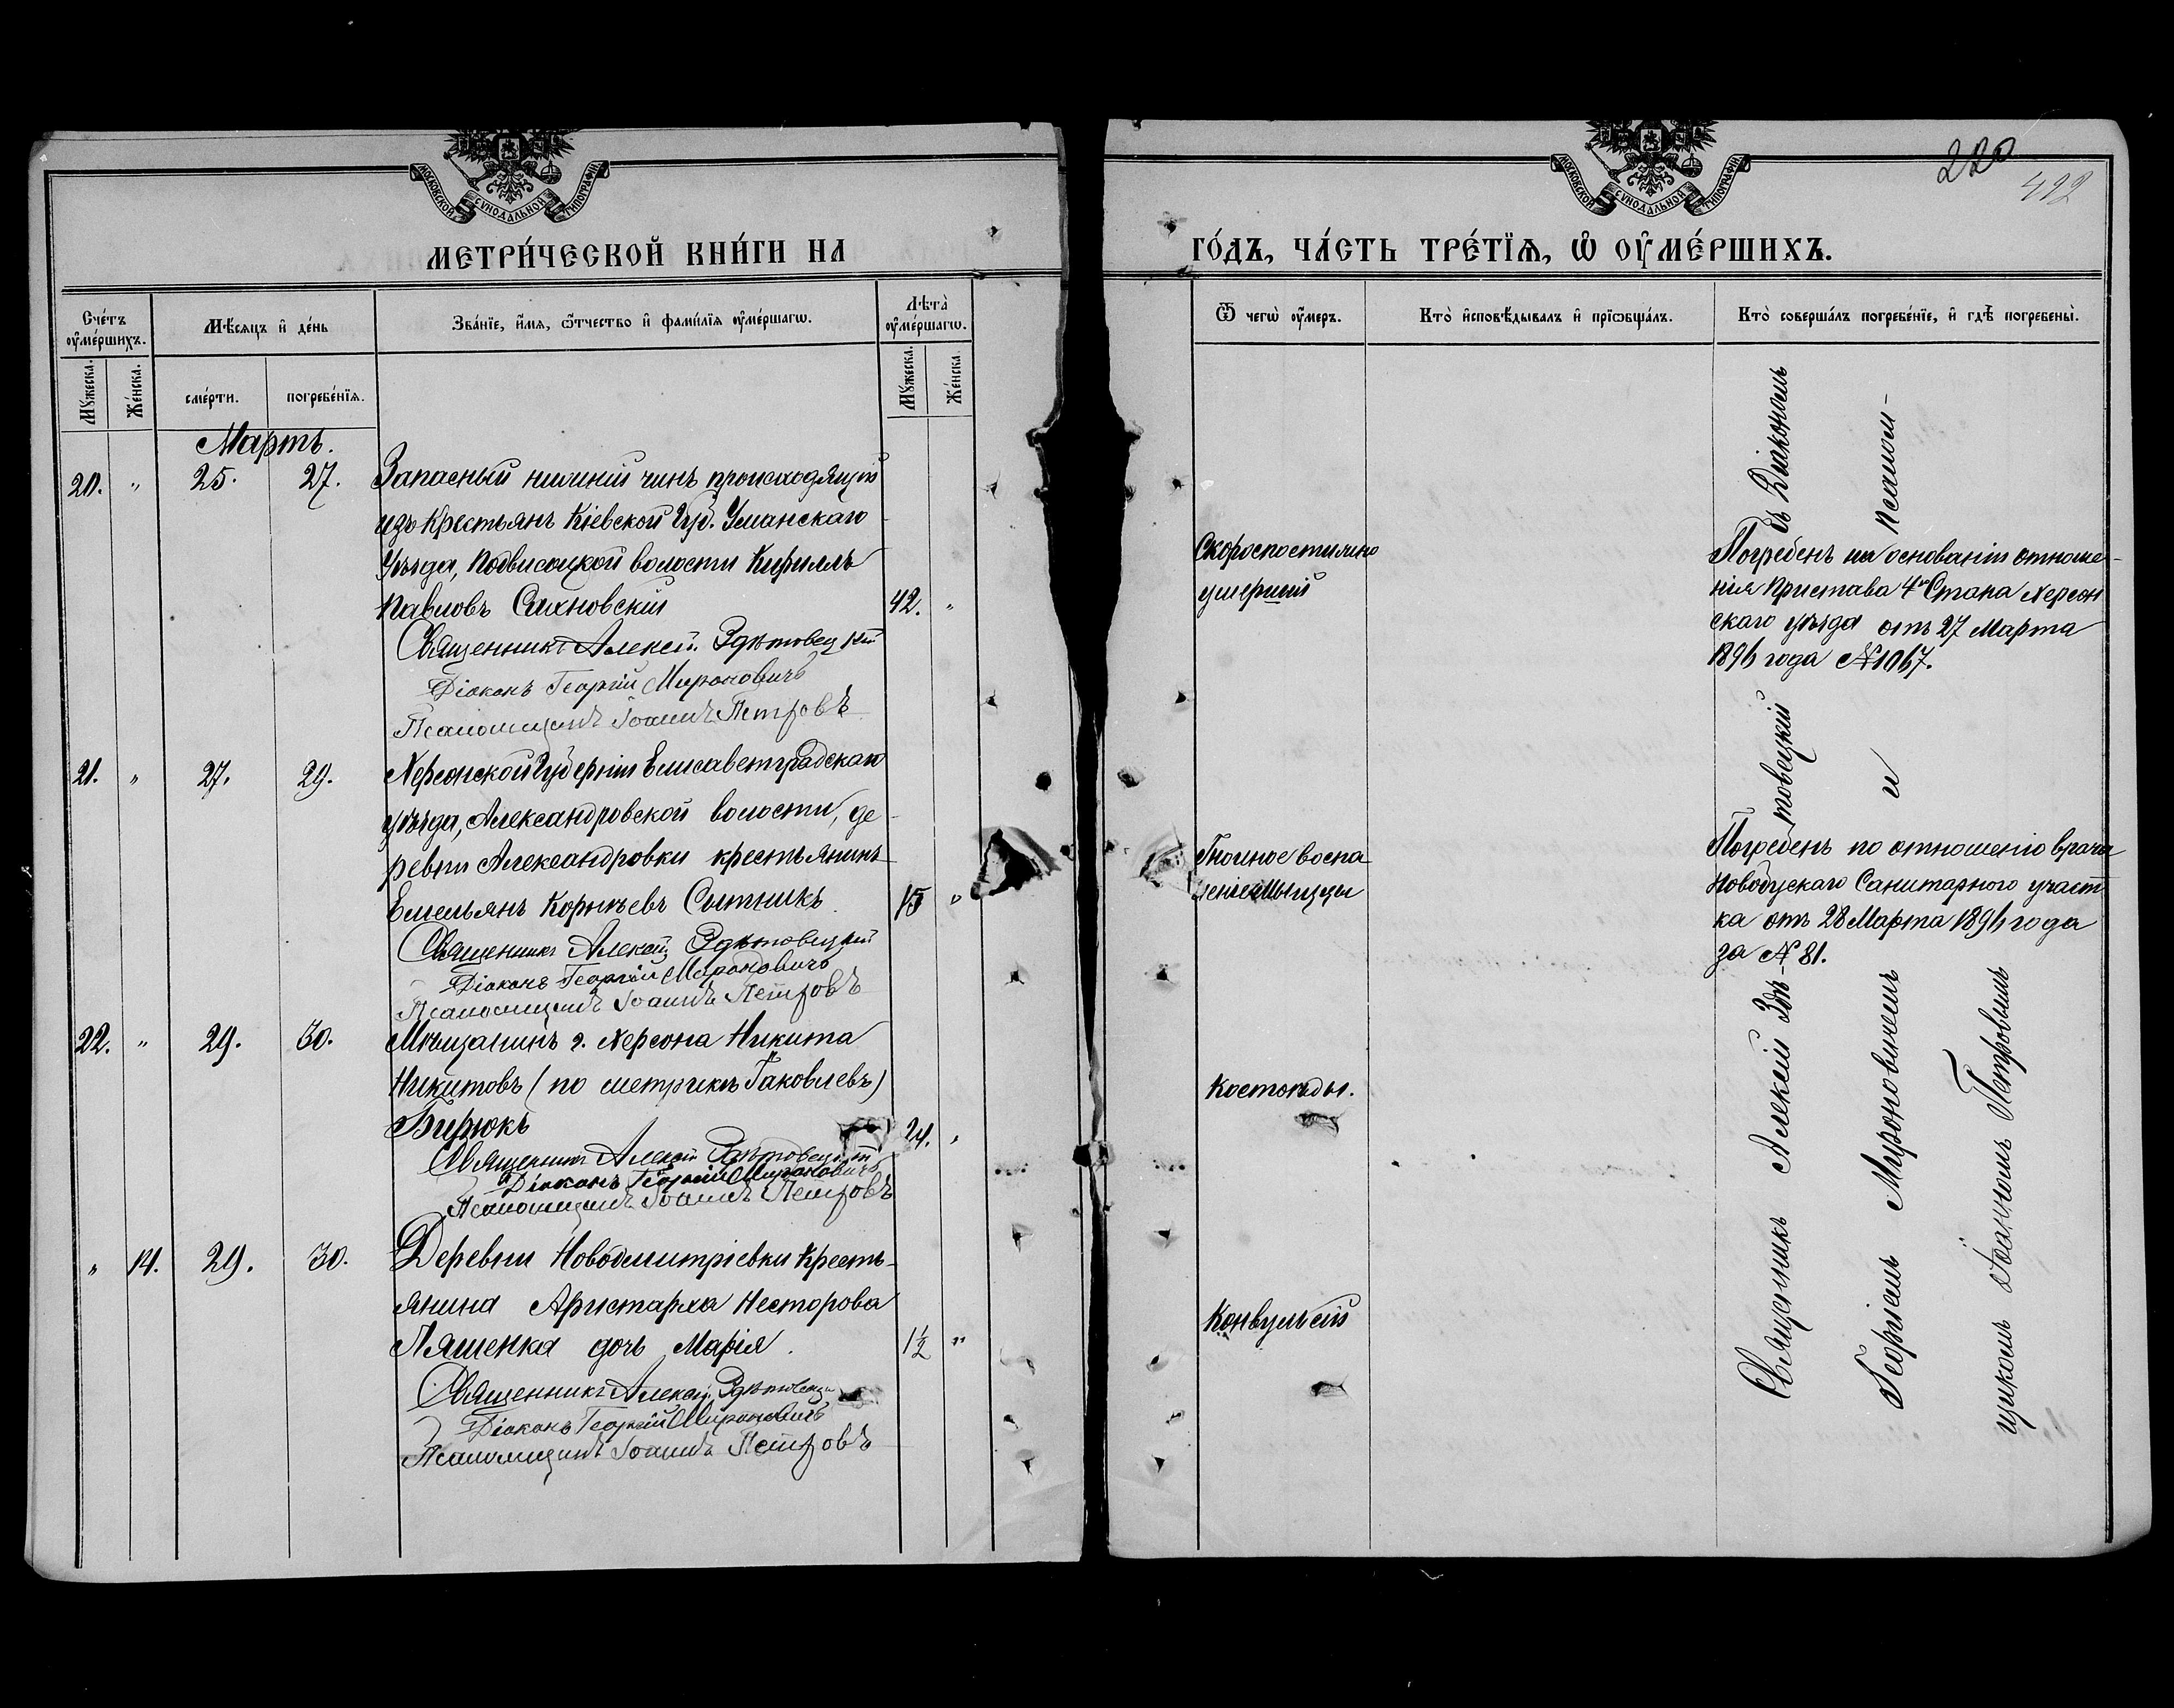 МОСКОВСКОЙ СУНОДАЛЬНОЙ ТИПОГРАФІИ
МОСКОВСКОЙ СУНОДАЛЬНОЙ ТИПОГРАФІИ
220
412
МЕТРИ́ЧЕСКОЙ КНИ́ГИ НА
ГО́ДЪ, ЧА́СТЬ ТРЕ́ТЇѦ, Ѡ ОУ҆МЕ́РШИХЪ.
Сче́тъ оу҆ме́ршихъ.
Мѣ́сяцъ и҆ де́нь
Зва́нїе, и҆́мя, ѻ҆́тчество и҆ фами́лїя оу҆ме́ршагѡ.
Лѣта̀ оу҆ме́ршагѡ.
Ѿ чегѡ̀ оу҆́меръ.
Кто̀ и҆сповѣ́дывалъ и҆ прїѻбща́лъ.
Кто̀ соверша́лъ погребе́нїе, и҆ гдѣ̀ погребены̀.
Му́жеска.
Же́нска.
сме́рти.
погребе́нїя.
Му́жеска.
Же́нска.
Мартъ.
20. " 25. 27. Запасный нижній чинъ происходящій
изъ крестьянъ Кіевской Губ. Уманскаго
Уѣзда, Подвисоцкой волости Кириллъ
Павловъ Сахновскій 42. "
Священникъ Алексій Здѣтовецкій
Діаконъ Георгій Мироновичъ
Псаломщикъ Іоаннъ Петровъ
Скоропостижно
умершій
Погребенъ на основаніи отноше-
нія Пристава 4го Стана Херсон
скаго уѣзда отъ 27 Марта
1896 года №1067.
21. " 27. 29. Херсонской Губерніи Елисаветградскаго
уѣзда, Александровской волости, де-
ревни Александровки крестьянинъ
Емельянъ Корнѣевъ Сытникъ 15 "
Священникъ Алексій Здѣтовецкій
Діаконъ Георгій Мироновичъ
Псаломщикъ Іоаннъ Петровъ
Гнойное воспа
леніе мышцы
Погребенъ по отношенію врача
Новобугскаго Санитарного участ
ка отъ 28 Марта 1896 года
за № 81.
22. " 29. 30. Мѣщанинъ г. Херсона Никита
Никитовъ (по метрикѣ Іаковлевъ)
Бирюкъ 24. "
Священникъ Алексій Здѣтовецкій
Діаконъ Георгій Мироновичъ
Псаломщикъ Іоаннъ Петровъ
Костоѣды.
" 14. 29. 30. Деревни Новодмитріевки кресть-
янина Аристарха Несторова
Ляшенка дочь Марія. 1½ "
Священникъ Алексій Здѣтовецкій
Діаконъ Георгій Мироновичъ
Псаломщикъ Іоаннъ Петровъ
Конвульсій
Священникъ Алексій Здѣ-товецкій съ Діакономъ
Георгіемъ Мироновичемъ и псалом-
щикомъ Іоанномъ Петровымъ